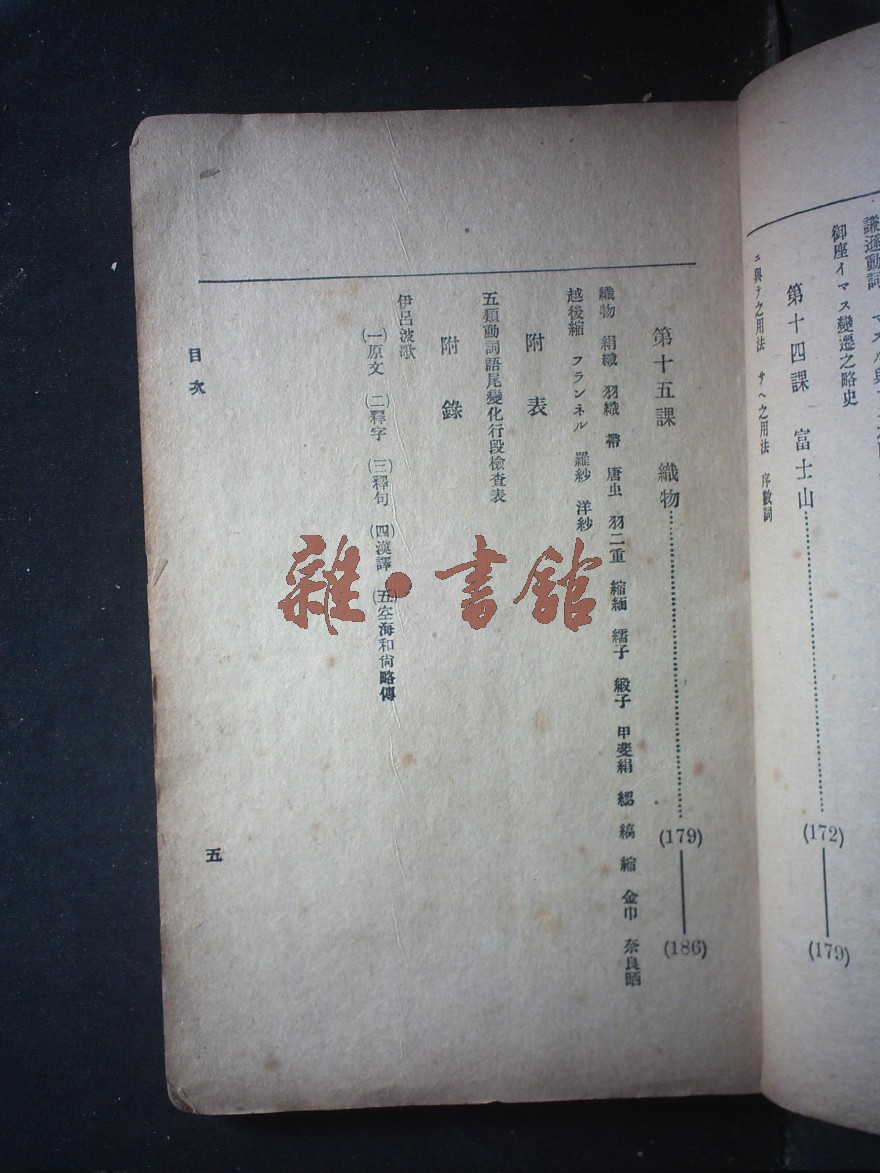 謙遜動詞
御座イマス變遷之略史
第十四課 富士山……(172)—(179)
ニ與テ之用法 サヘ之用法 序數詞
第十五課 織物……(179)—(186)
織物 絹織 羽織 帶 唐虫 羽二重 縮緬 繻子 緞子 甲斐絹 絽 縞 縮 金巾 奈良晒
越後縮 フランネル 羅紗 洋紗
附表
五類動詞語尾變化行段檢查表
附錄
伊呂波歌
(一)原文 (二)釋字 (三)釋句 (四)漢譯 (五)空海和尙略傳
目次
五
雜·書館